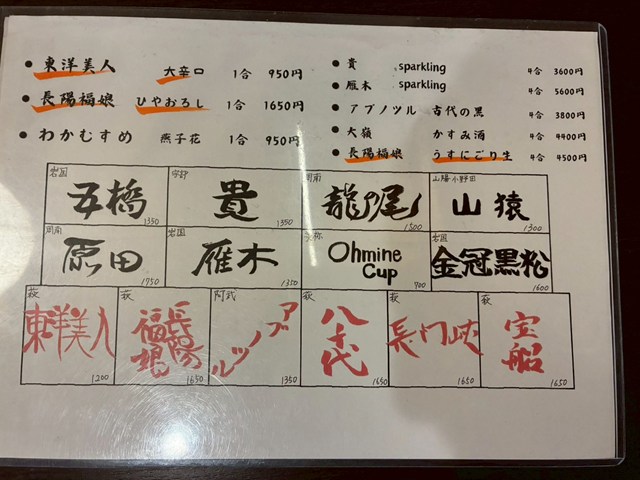 東洋美人 大辛口 1合 950円
長陽福娘 ひやおろし 1合 1650円
わかむすめ 燕子花 1合 950円
貴 sparkling 4合 3600円
雁木 sparkling 4合 5600円
アブノツル 古代の黒 4合 3800円
大嶺 かすみ酒 4合 4400円
長陽福娘 うすにごり生 4合 4500円
岩国 五橋 1350
宇部 貴 1350
周南 龍乃尾 1500
山陽小野田 山猿 1300
周南 原田 1750
岩国 雁木 1350
美祢 Ohmine Cup 700
岩国 金冠黒松 1600
萩 東洋美人 1200
萩 長陽福娘 1650
阿武 アブノツル 1350
萩 八千代 1650
萩 長門峡 1650
萩 宝船 1650